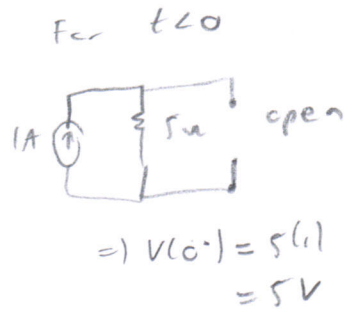 For t<0
1A 5Ω open
=) V(0-) = 5(1)
= 5V